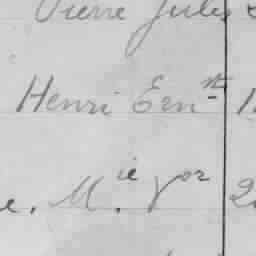 Pierre Jules
Henri Ern^st 1
e. M.^ie V^or 2